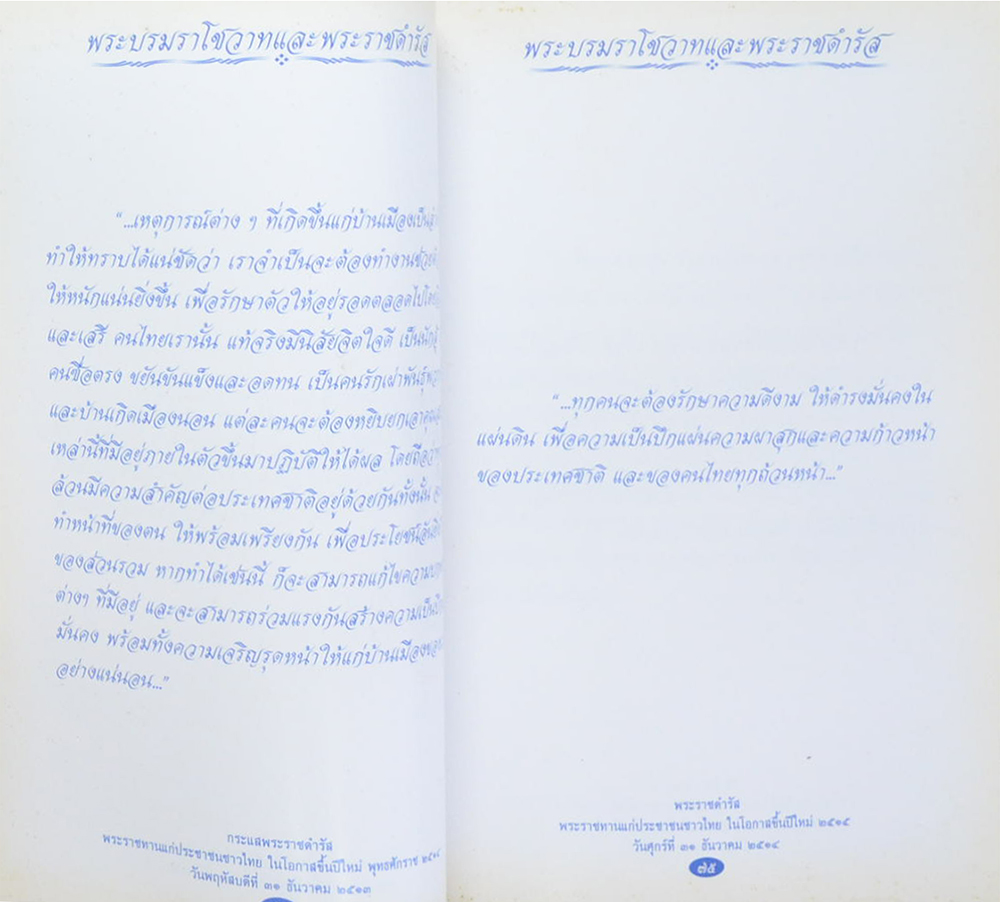 พระบรมราโชวาทและพระราชดำรัส
“...เหตุการณ์ต่าง ๆ ที่เกิดขึ้นแก่บ้านเมืองเป็น
ทำให้ทราบได้แน่ชัดว่า เราจำเป็นจะต้องทำงาน
ให้หนักแน่นยิ่งขึ้น เพื่อรักษาตัวให้อยู่รอดตลอดไป
และเสรี คนไทยเรานั้น แท้จริงมีนิสัยจิตใจดี เป็น
คนซื่อตรง ขยันขันแข็งและอดทน เป็นคนรักเผ่าพันธุ์
และบ้านเกิดเมืองนอน แต่ละคนจะต้องหยิบยกเอา
เหล่านี้ที่มีอยู่ภายในตัวขึ้นมาปฏิบัติให้ได้ผล โดยถือว่า
ล้วนมีความสำคัญต่อประเทศชาติอยู่ด้วยกันทั้งนั้น
ทำหน้าที่ของตน ให้พร้อมเพรียงกัน เพื่อประโยชน์
ของส่วนรวม หากทำได้เช่นนี้ ก็จะสามารถแก้ไขความ
ต่างๆ ที่มีอยู่ และจะสามารถร่วมแรงกันสร้างความเป็น
มั่นคง พร้อมทั้งความเจริญรุดหน้าให้แก่บ้านเมือง
อย่างแน่นอน...”
กระแสพระราชดำรัส
พระราชทานแก่ประชาชนชาวไทย ในโอกาสขึ้นปีใหม่ พุทธศักราช ๒๕๑๔
วันพฤหัสบดีที่ ๓๑ ธันวาคม ๒๕๑๓
พระบรมราโชวาทและพระราชดำรัส
“...ทุกคนจะต้องรักษาความดีงาม ให้ดำรงมั่นคงใน
แผ่นดิน เพื่อความเป็นปึกแผ่นความผาสุกและความก้าวหน้า
ของประเทศชาติ และของคนไทยทุกถ้วนหน้า...”
พระราชดำรัส
พระราชทานแก่ประชาชนชาวไทย ในโอกาสขึ้นปีใหม่ ๒๕๑๕
วันศุกร์ที่ ๓๑ ธันวาคม ๒๕๑๔
๗๕